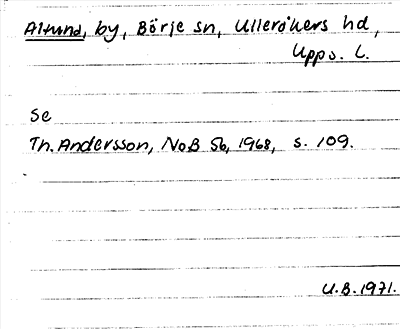 Altuna, by, Börje sn, Ulleråkers hd,
Upps. L.
Se
Th. Andersson, NoB 56, 1968, s. 109.
U.B. 1971.